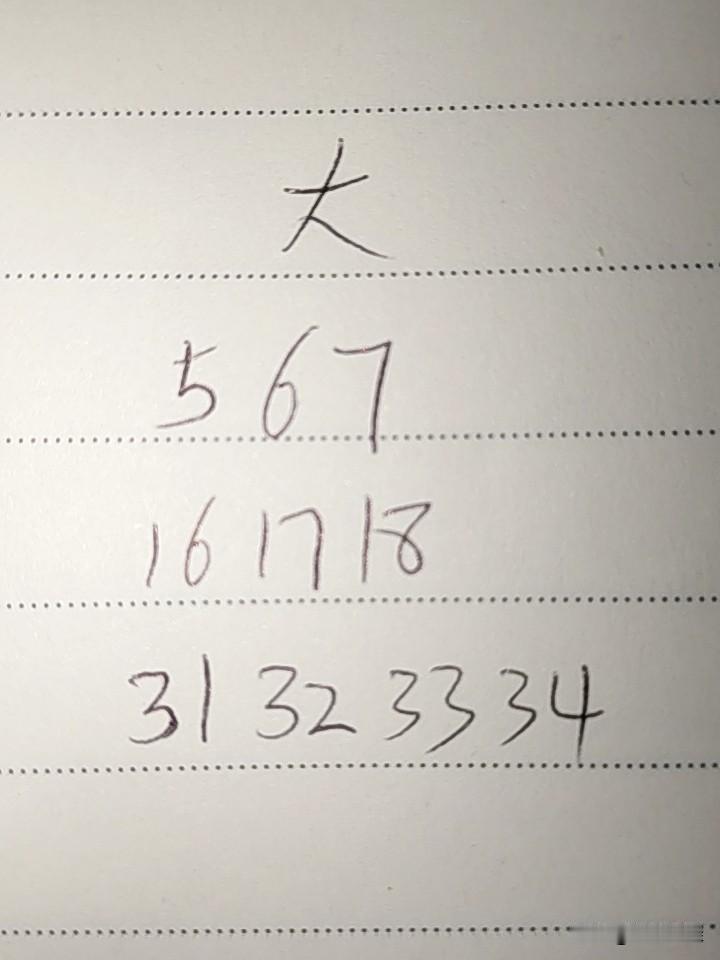 大
5 6 7
16 17 18
31 32 33 34